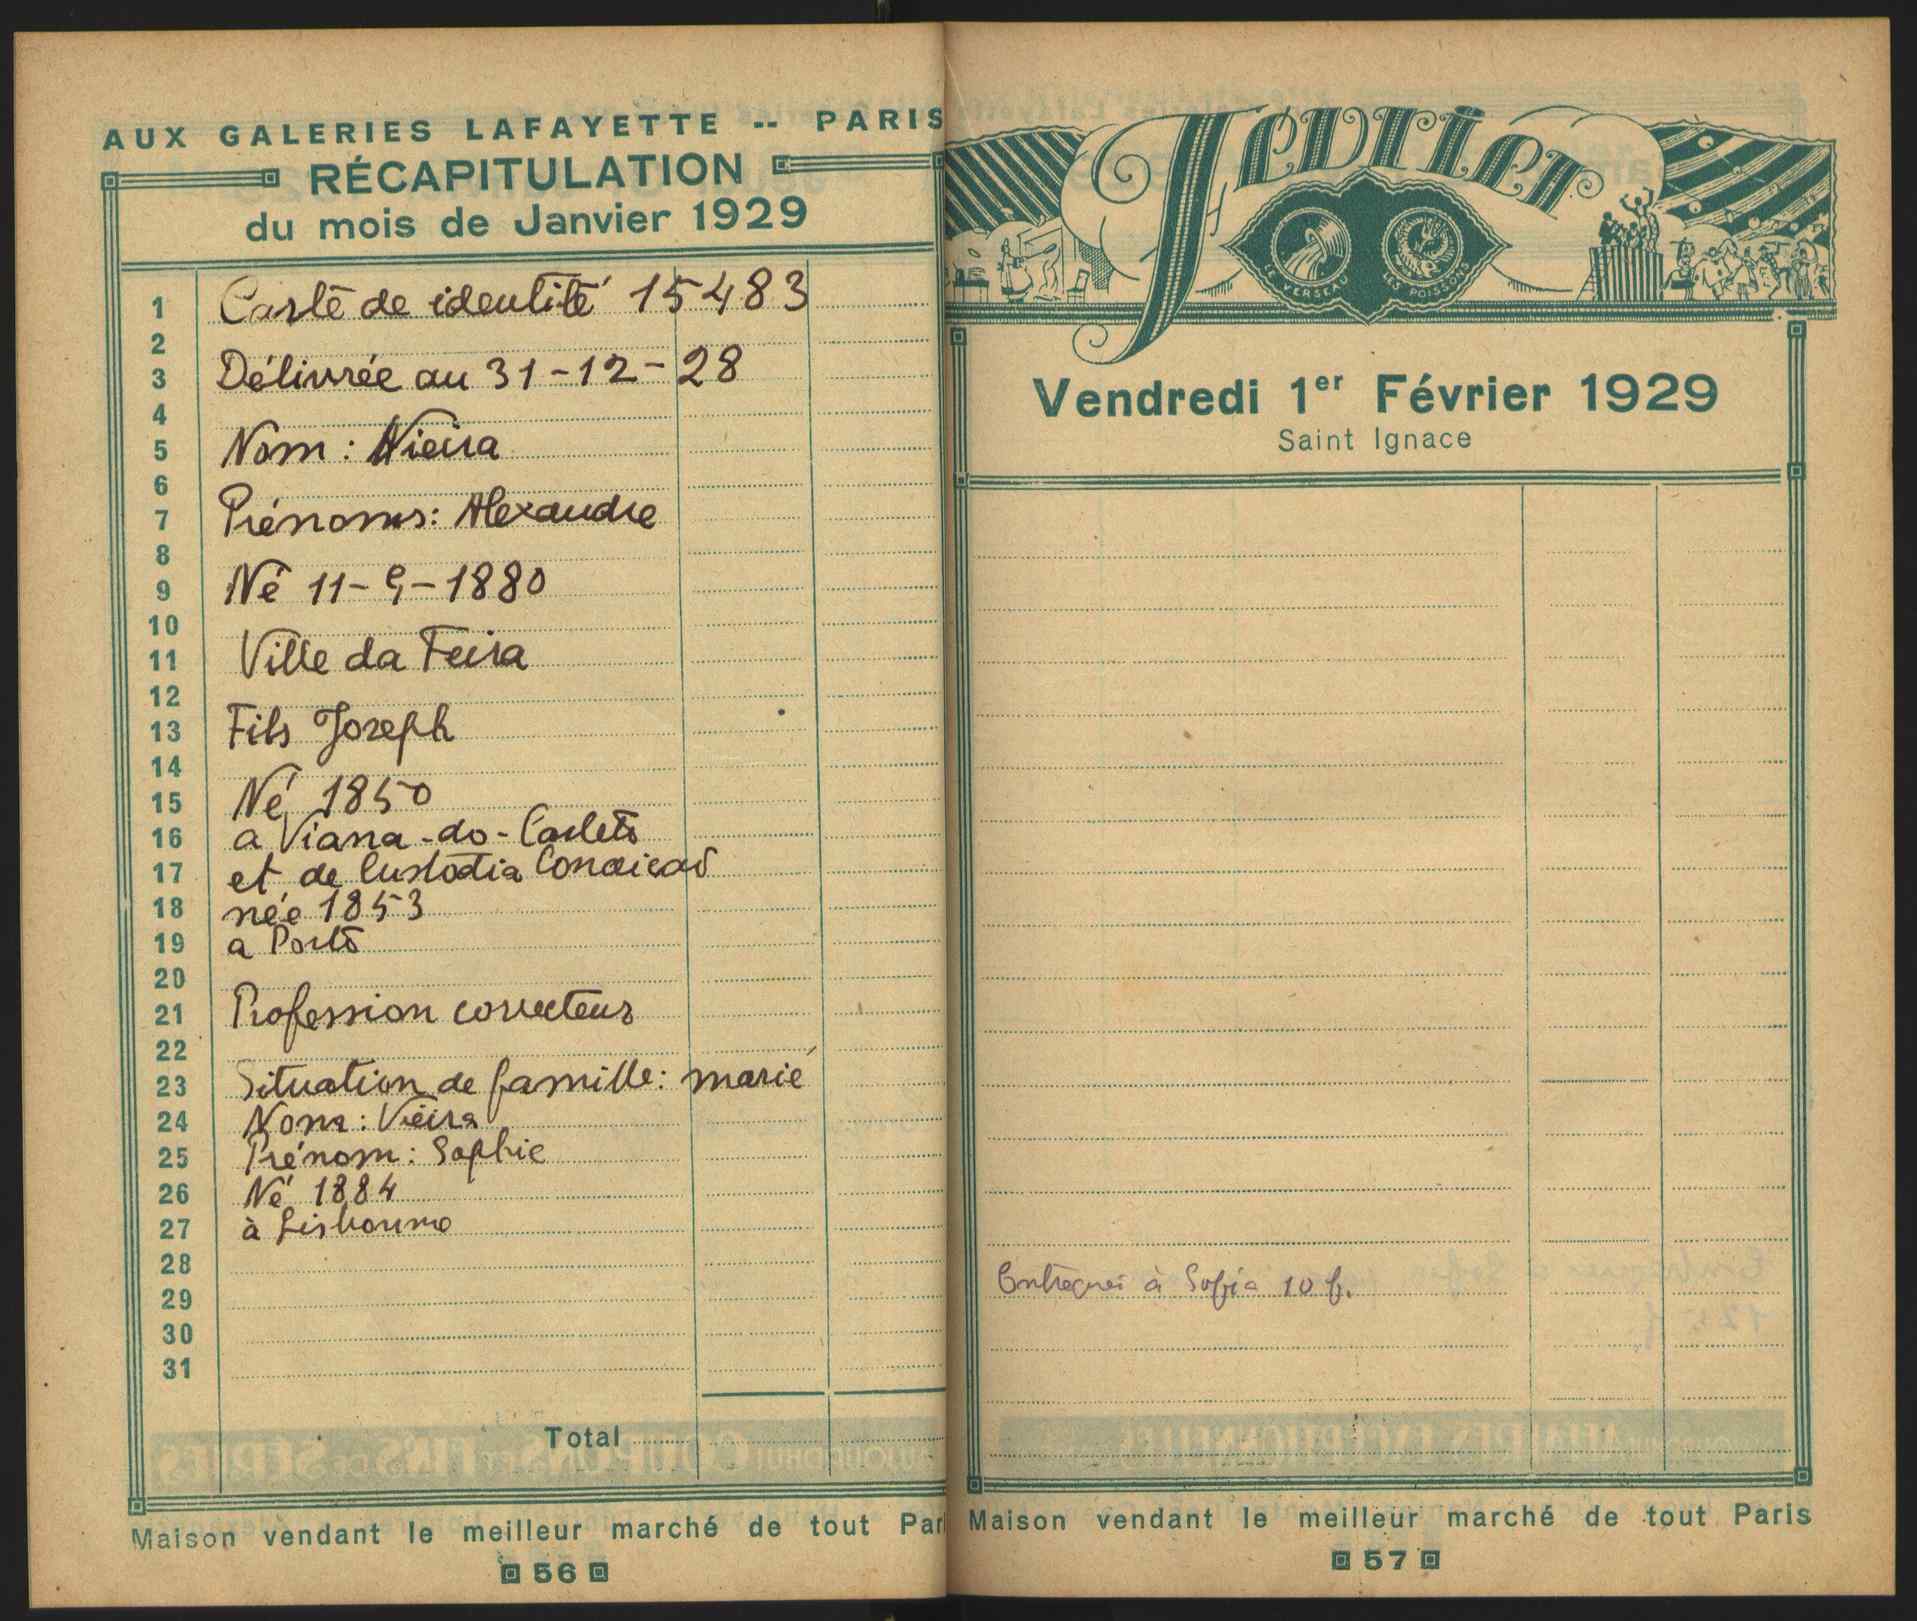 AUX GALERIES LAFAYETTE -- PARIS
RÉCAPITULATION
du mois de Janvier 1929
1 Carte de identité 15483
2
3 Délivrée au 31-12-28
4
5 Nom: Vieira
6
7 Prénoms: Alexandre
8
9 Né 11-9-1880
10
11 Ville da Feira
12
13 Fils Joseph
14
15 Né 1850
16 a Viana-do-Castelo
17 et de Custodia
18 née 1853
19 a Porto
20
21 Profession correcteur
22
23 Situation de famille: marié
24 Nom: Vieira
25 Prénom: Sophie
26 Né 1884
27 à Lisbonne
28
29
30
31
Total
Maison vendant le meilleur marché de tout Par
56
Février
LE VERSEAU
LES POISSONS
Vendredi 1er Février 1929
Saint Ignace
Entreguei à Sofia 10 f.
Maison vendant le meilleur marché de tout Paris
57